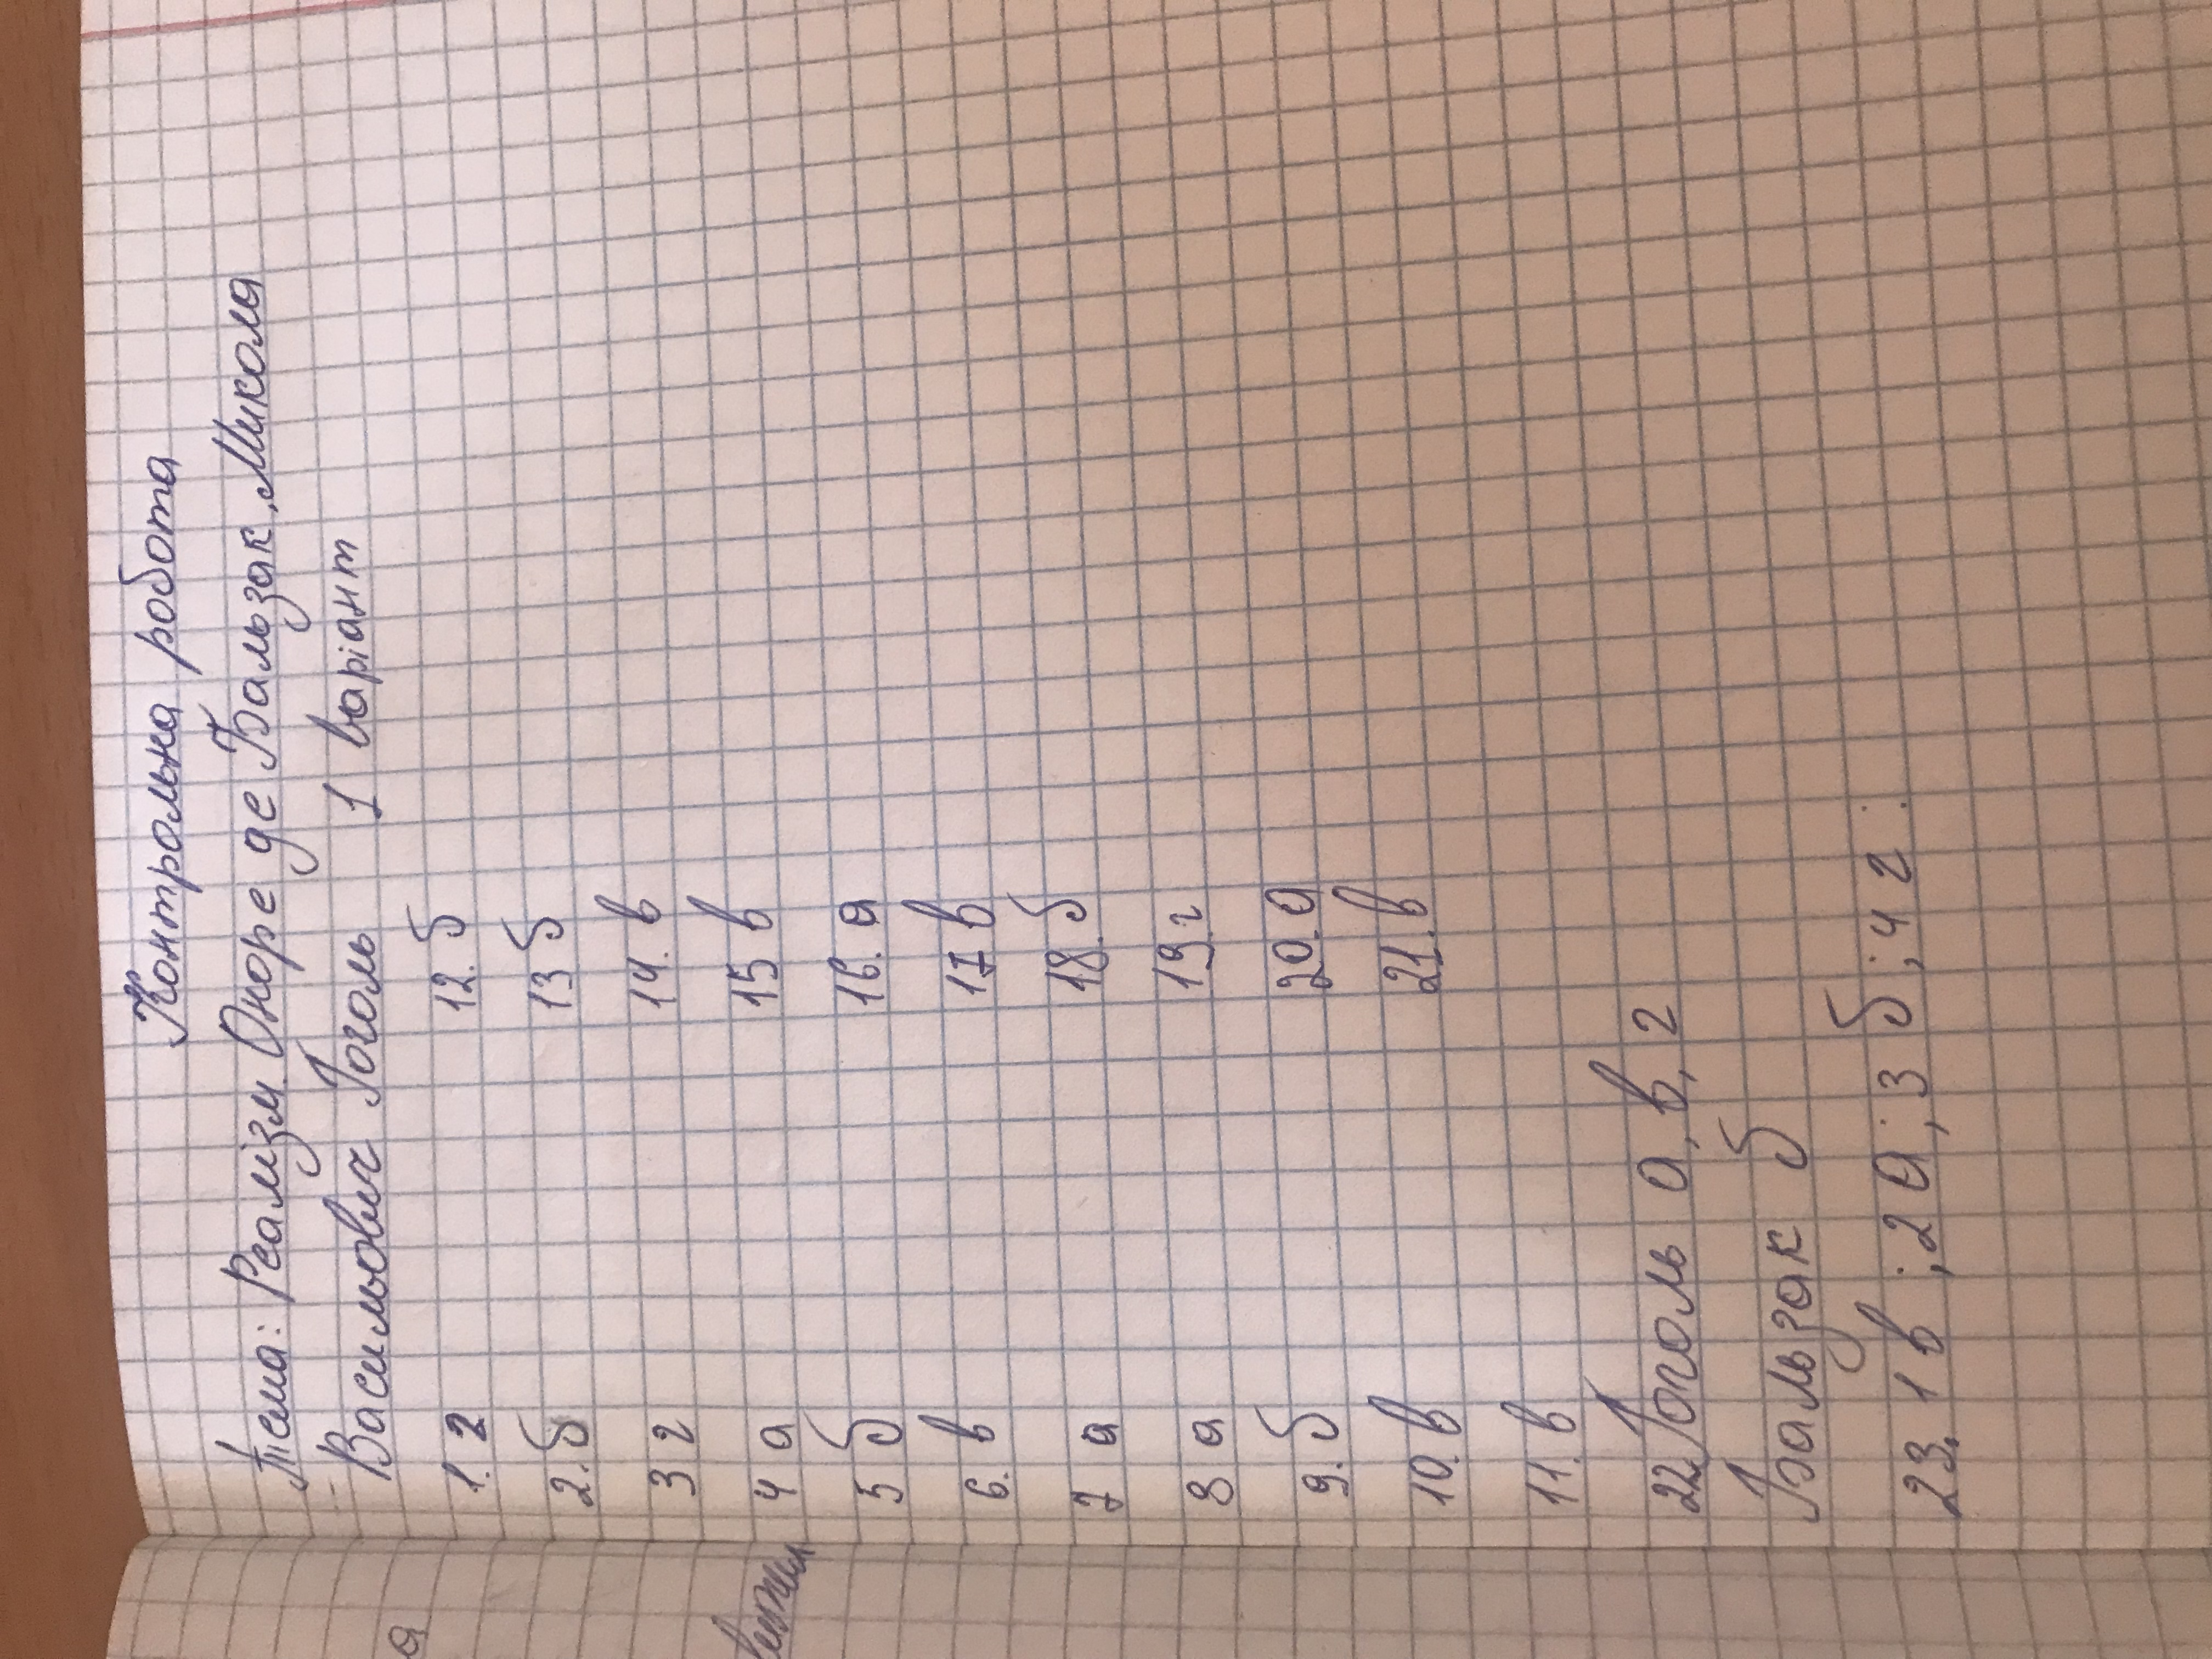 Контрольна робота
Тема: Реалізм. Оноре де Бальзак, Микола
Васильович Гоголь 1 варіант
1. г 12. б
2. б 13 б
3 г 14. в
4 а 15 в
5 б 16. а
6. в 17 в
7 а 18. б
8 а 19. г
9. б 20. а
10. в 21. в
11. в
22. Гоголь а, в, г
Бальзак б
23. 1 в ; 2 а ; 3 б ; 4 г .
а